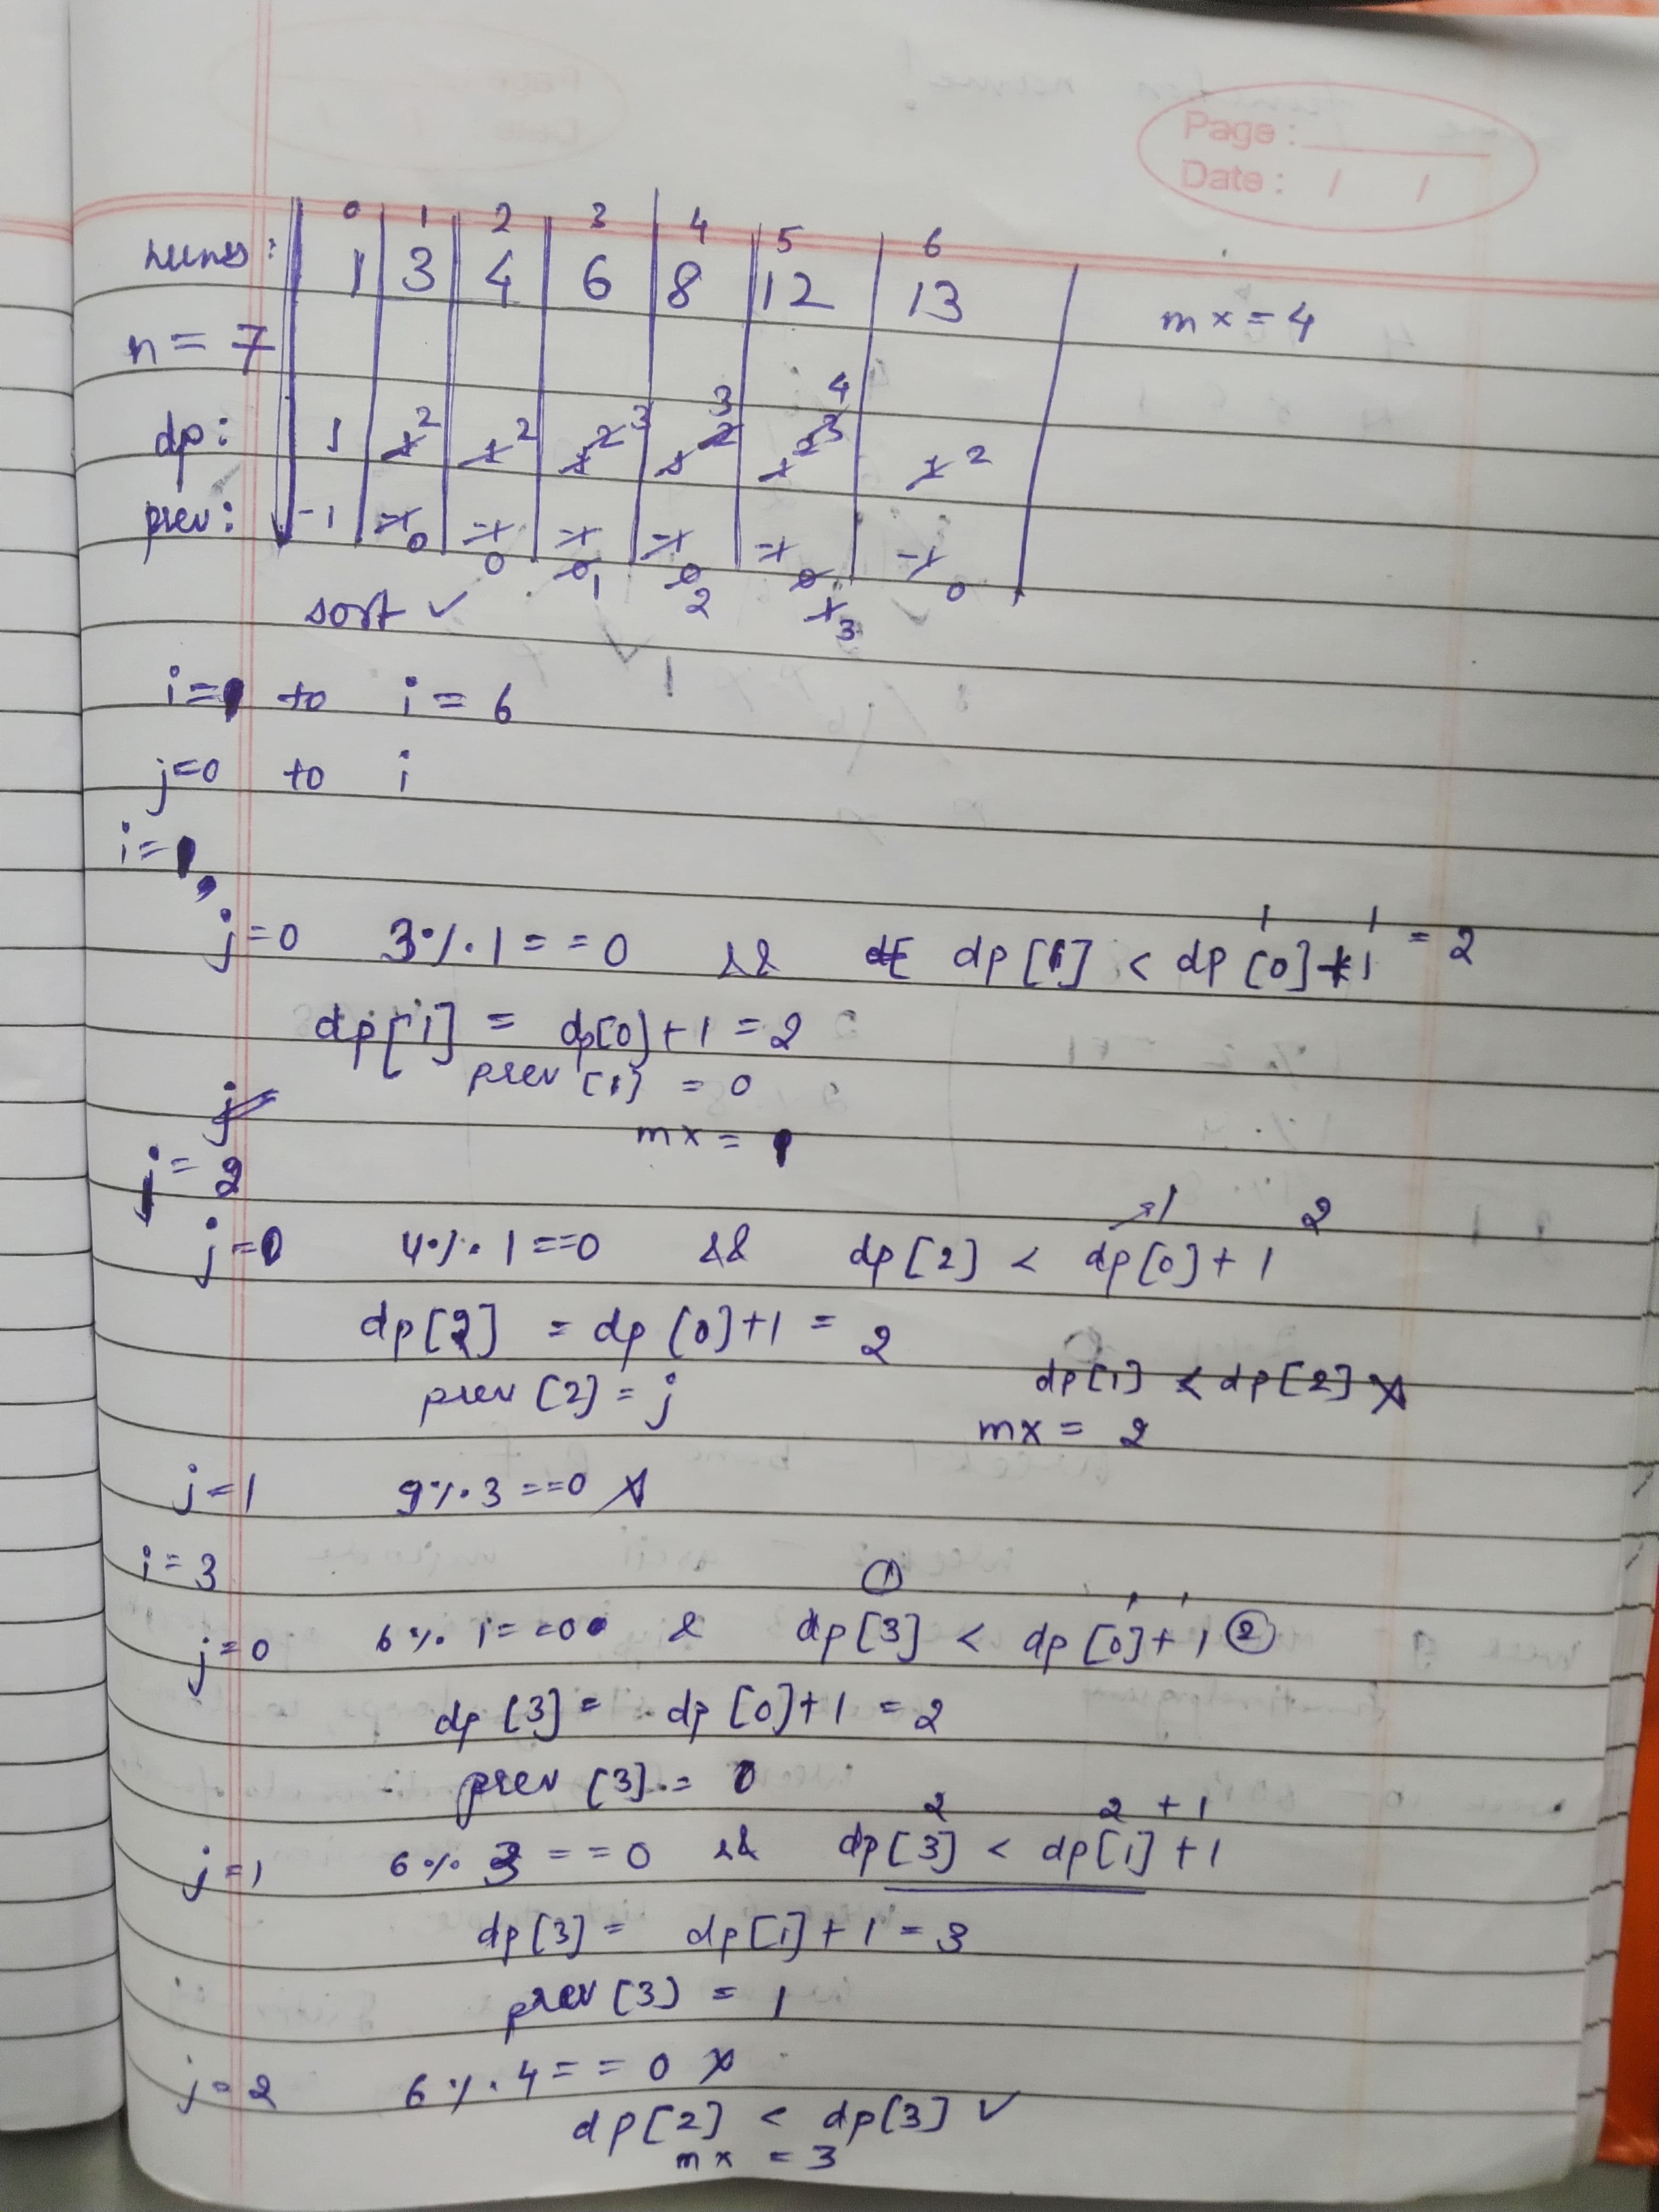 Page :
Date : / /
0 1 2 3 4 5 6
nums: 1 3 4 6 8 12 13 mx = 4
n = 7
dp: 1 1 2 1 2 1 2 3 1 2 3 1 2 3 4 1 2
prev: -1 -1 0 -1 0 -1 0 1 -1 0 2 -1 0 1 3 -1 0
sort ✓
i=1 to i = 6
j=0 to i
i=1,
j=0 3%1 == 0 && dp[1] < dp[0]+1 = 2
1 1
dp[1] = dp[0]+1 = 2
prev[1] = 0
mx = 1
i = 2
→1 2
j=0 4%1==0 && dp[2] < dp[0]+1
dp[2] = dp[0]+1 = 2
prev[2] = j
dp[1] < dp[2] X
mx = 2
j=1 9%3==0 X
i=3
1 1 1
j=0 6%1==0 & dp[3] < dp[0]+1 2
dp[3] = dp[0]+1 = 2
prev[3] = 0
2 2 + 1
j=1 6%3 == 0 && dp[3] < dp[1]+1
dp[3] = dp[1]+1 = 3
prev[3] = 1
j=2 6%4 == 0 X
dp[2] < dp[3] ✓
mx = 3